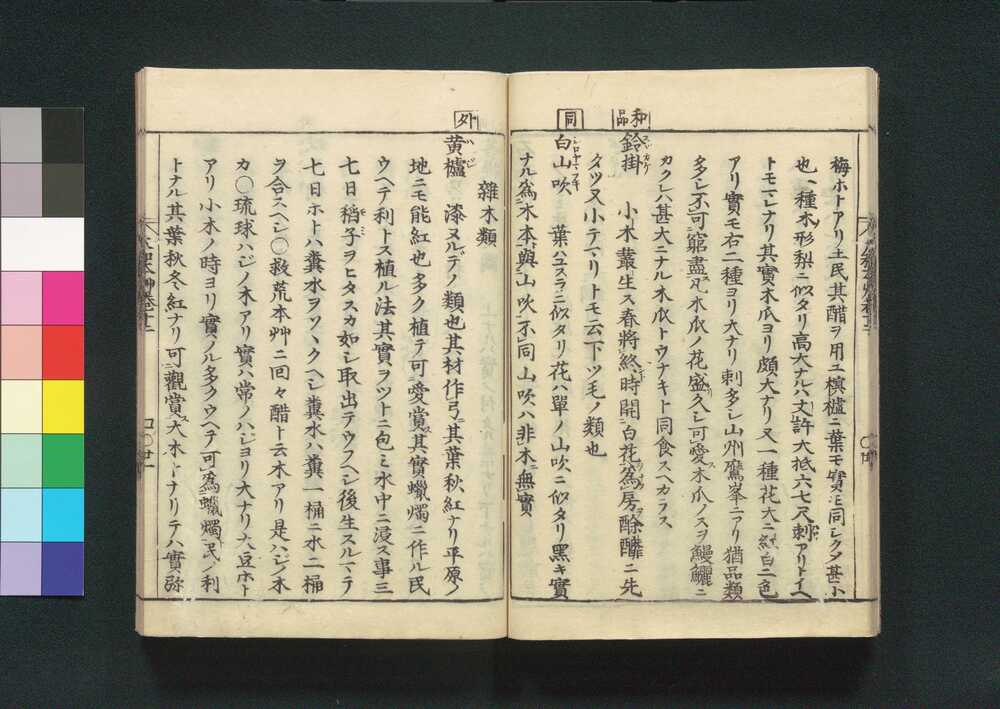 梅ホトアリ土民其醋ヲ用ユ榠樝ニ葉モ實モ同シクメ甚小
也一種木形梨ニ似タリ高大ナルハ丈許大抵六七尺刺アリトイヘ
トモマレナリ其實木瓜ヨリ頗大ナリ又一種花大ニ紅白二色
アリ實モ右二種ヨリ大ナリ刺多シ山州鷹峯ニアリ猶品類
多シ不可窮盡凡木瓜ノ花盛久シ可愛木瓜ノスヲ鰻鱺ニ
カクレハ甚大ニナル木瓜トウナキト同食スヘカラス
和品
鈴掛 小木叢生ス春將終時開白花為房酴醾ニ先
スヾカケ
タツ又小テマリトモ云下ツモノ類也
同
白山吹 葉ハユスラニ似タリ花ハ單ノ山吹ニ似タリ黒キ實
シロヤマフキ
ナル為木本與山吹不同山吹ハ非木無實
雜木類
外
黄櫨 漆ヌルデノ類也其材作弓其葉秋紅ナリ平原ノ
ハジ
地ニモ能紅也多ク植テ可愛賞其實蠟燭ニ作ル民
ウヘテ利トス植ル法其實ヲツトニ包ミ水中ニ浸ス事三
七日稻子ヲヒタスカ如シ取出テウフヘシ後生スルマテ
七日ホトハ糞水ヲソヽクヘシ糞水ハ糞一桶ニ水二桶
ヲ合スヘシ〇救荒本艸ニ回々醋ト云木アリ是ハジノ木
カ〇琉球ハジノ木アリ實ハ常ノハジヨリ大ナリ大豆ホト
アリ小木ノ時ヨリ實ノル多クウヘテ可為蠟燭民ノ利
トナル其葉秋冬紅ナリ可觀賞大木トナリテハ實弥